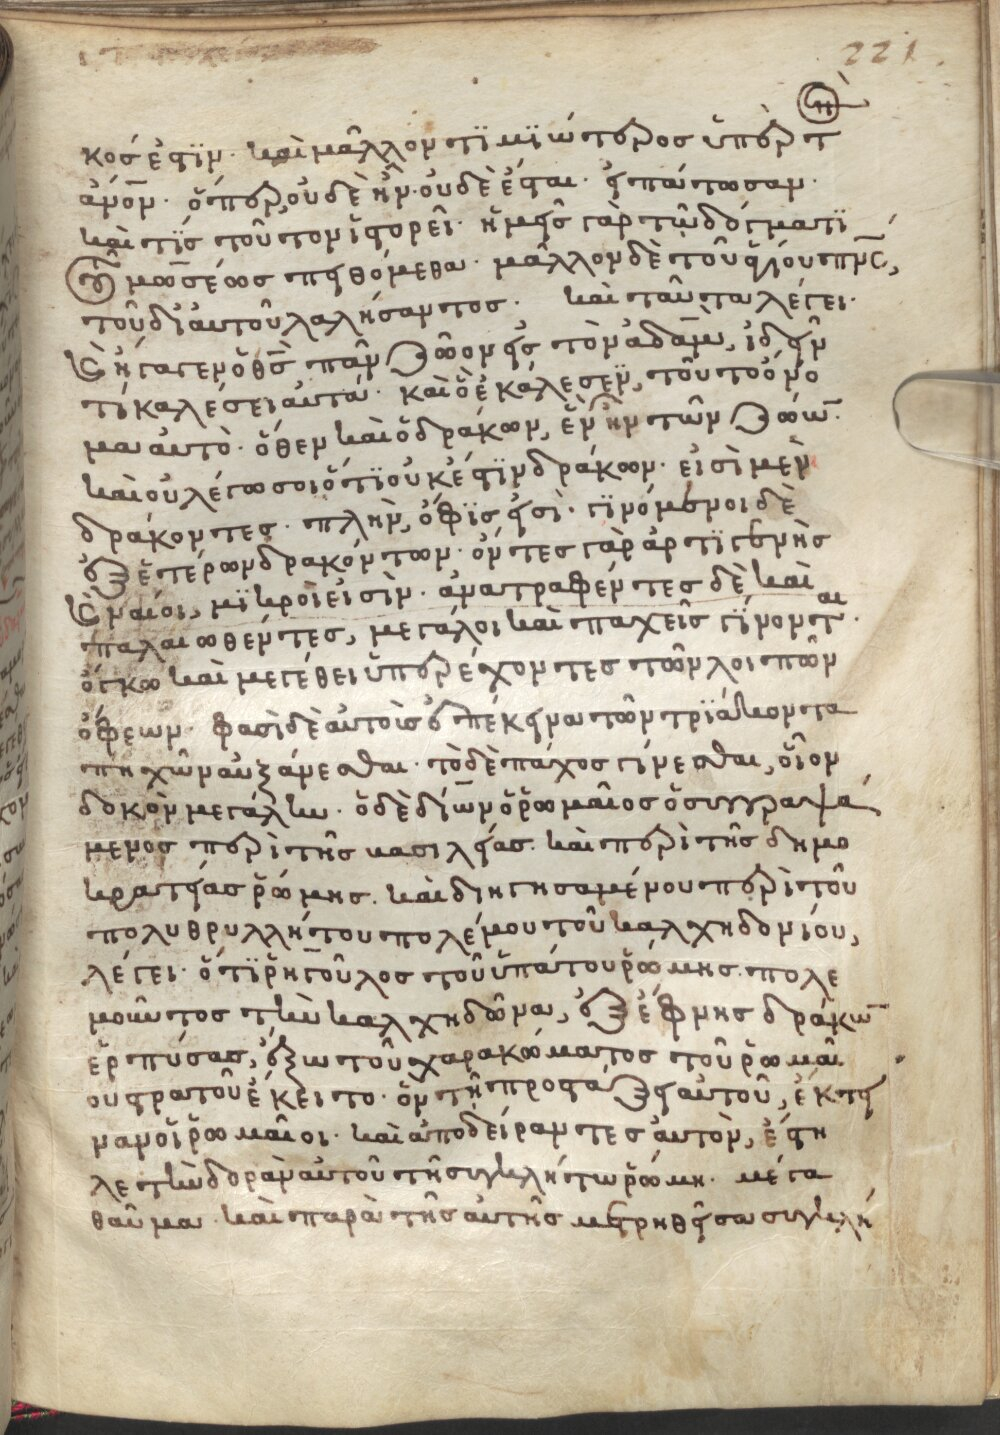 221
κός ἐστϊν· καὶ μᾶλλον τϊμϊώτερος ὑπὲρ τ
ἄν̅ο̅ν· ὅπερ οὐδὲ ἦν· οὐδὲ ἔσται· εἰπάτωσαν·
καὶ τίς τοῦτον ἱστορεῖ· ἡμεῖς γὰρ τῶ δόγματϊ
τοῦ μωσέως πειθόμεθα· μᾶλλον δὲ τοῦ ἁγίου πν̅ς̅,
τοῦ δι αὐτοῦ λαλήσαντος. καὶ ταῦτα λέγει·
Καὶ ἤγαγεν ὁ θ̅ς̅ πᾶν ζῶον εἰς τὸν ἀδὰμ, ἰδεῖν
τί καλέσει αὐτά· καὶ ὃ ἐκάλεσεν, τοῦτο ὄνο
μα αὐτὸ· ὅθεν καὶ ὁ δράκων, ἓν ἦν τῶν ζώων·
καὶ οὐ λέγω σοι ὅτϊ οὐκ ἔστϊν δράκων· εἰσὶ μὲν
δράκοντες· πλὴν, ὄφϊς εἰσὶ· γϊνόμενοι δὲ
ἐξ ἑτέρων δρακόντων· ὄντες γὰρ ἀρτϊγενὴς
καὶ ναίοι, μϊκροὶ εἰσὶν· ἀνατραφέντες δὲ καὶ
παλαιωθέντες, μεγάλοι καὶ παχεῖς γϊνονται·
ὄγκω καὶ μεγέθει ὑπερέχοντες τῶν λοιπῶν
ὄφεων· φασὶ δὲ αὐτοὶς ἐπέκεινα τῶν τρϊάκοντα
πηχῶν αὐξάνεσθαι· τὸ δὲ πάχος γίνεσθαι, οἷον
δοκὸν μεγάλην· ὁ δὲ δίων ὁ ῥωμαῖος ὁ συγγραψά
μενος περὶ τῆς βασιλείας· καὶ περὶ τῆς δημο
κρατείας ῥώμης· καὶ διηγησαμένου περὶ τοῦ
πολυθρυλλήτου πολέμου τοῦ καλχηδονίου,
λέγει· ὅτϊ ῥηγοῦλος τοῦ ὑπάτου ῥώμης πολε
μοῦντος τὴν καλχηδῶνα, ἐξέφνης δράκων
ἑρπύσας, ἔξω τοῦ χαρακώματος τοῦ ῥωμαῖ
ου στρατοῦ ἔκειτο· ὃν τῆ προστάξει αὐτοῦ, ἔκτει
ναν οἱ ῥωμαῖοι· καὶ ἀποδείραντες αὐτὸν, ἔστη
λε τὴν δορὰν αὐτοῦ τῆ συγκλήτω ῥώμη· μέγα
θαῦμα· καὶ παρὰ τῆς αὐτῆς μετρηθεῖσα συγκλή